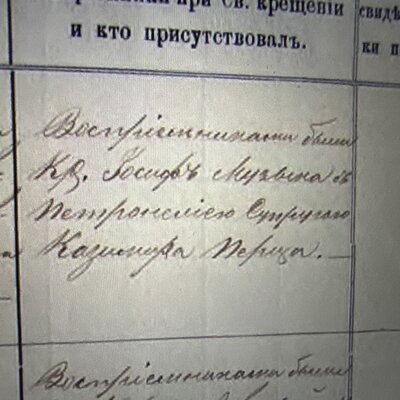 при Св. крещеніи
и кто присутствовалъ.
свидѣ
ки п
Воспріемниками были
Кр. Іосифъ Музыка съ
Петронелією Супругою
Казимира Перца.
Воспріемниками были